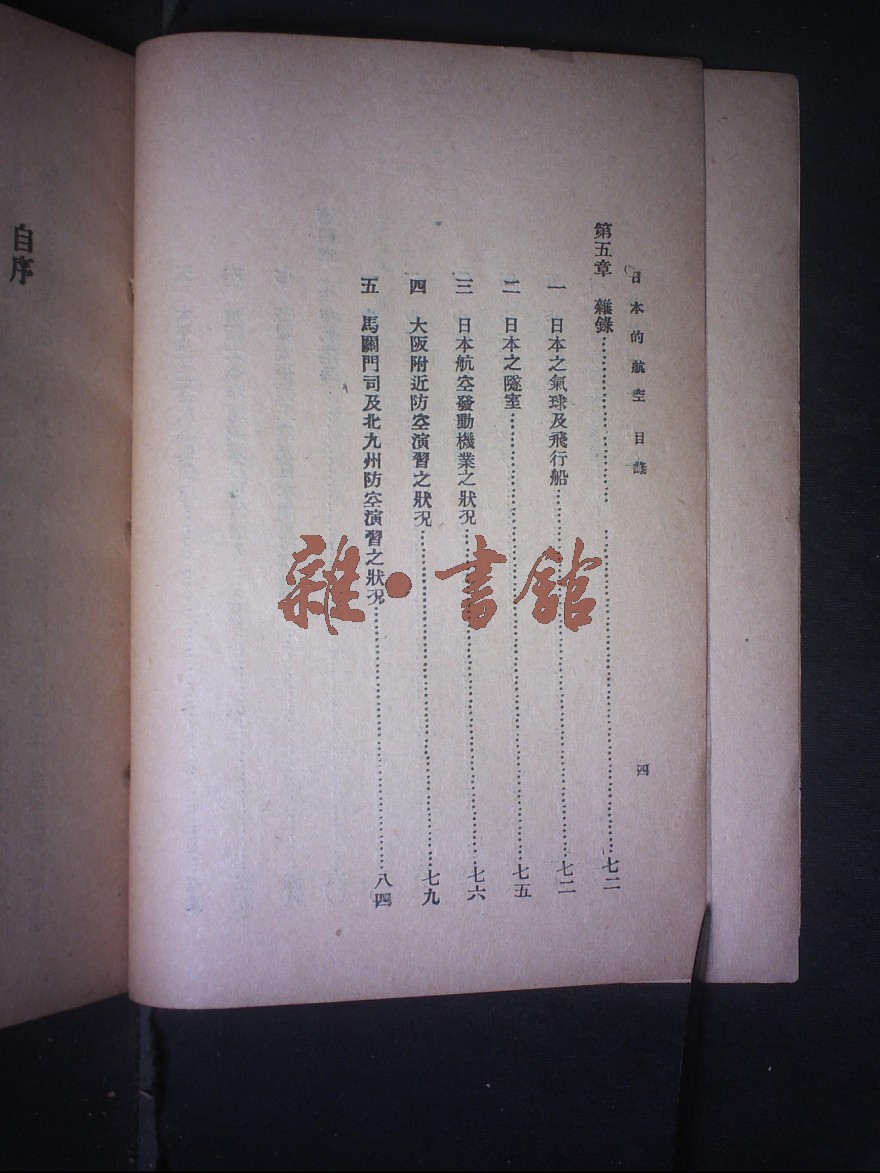 日本的航空 目錄
四
第五章 雜錄……七二
一 日本之氣球及飛行船……七二
二 日本之隧室……七五
三 日本航空發動機業之狀況……七六
四 大阪附近防空演習之狀況……七九
五 馬關門司及北九州防空演習之狀況……八四
自序
雜·書館